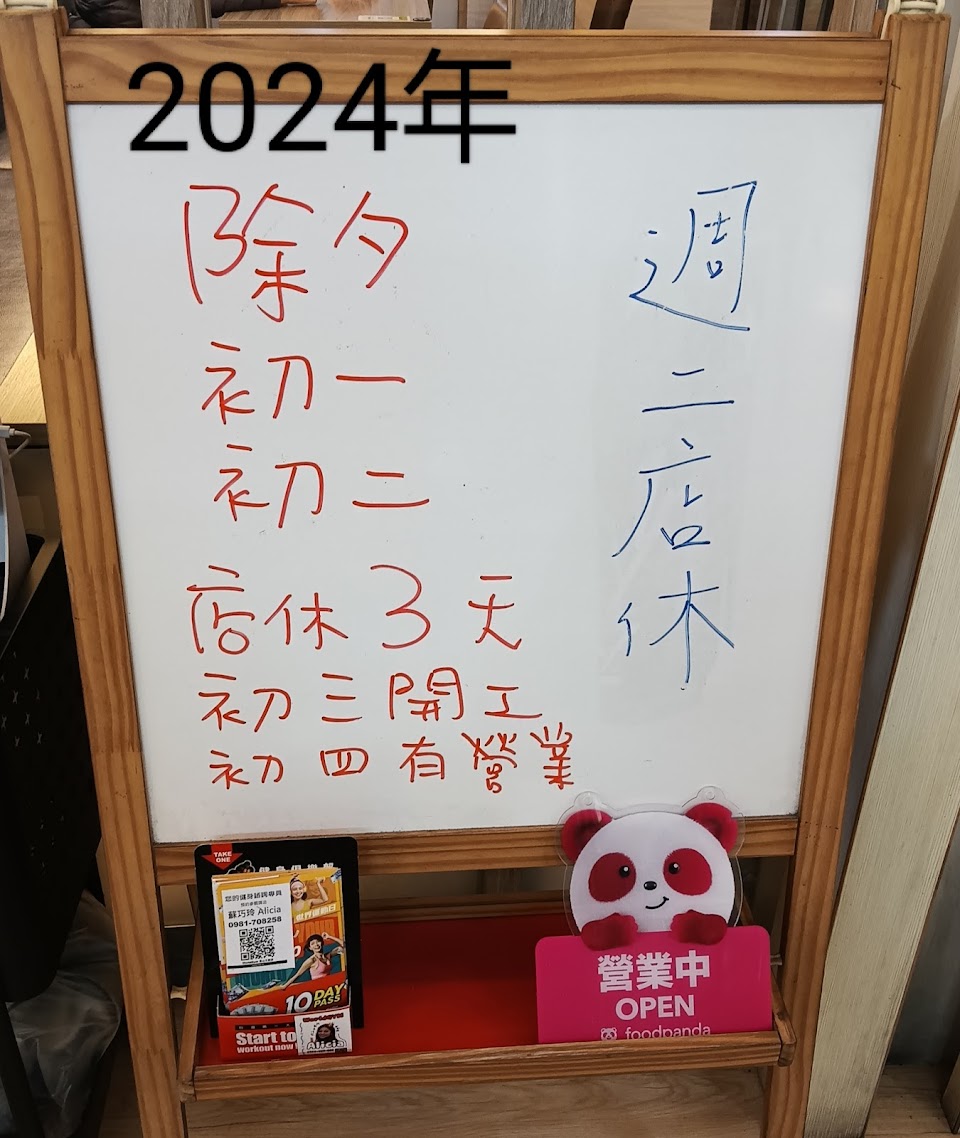 2024年
除夕
初一
初二
店休3天
初三開工
初四有營業
週二店休
TAKE
ONE
您的健身諮詢專員
蘇巧玲 Alicia
0981-708258
10 DAY
PASS
Start to
workout now!
Alicia
營業中
OPEN
foodpanda